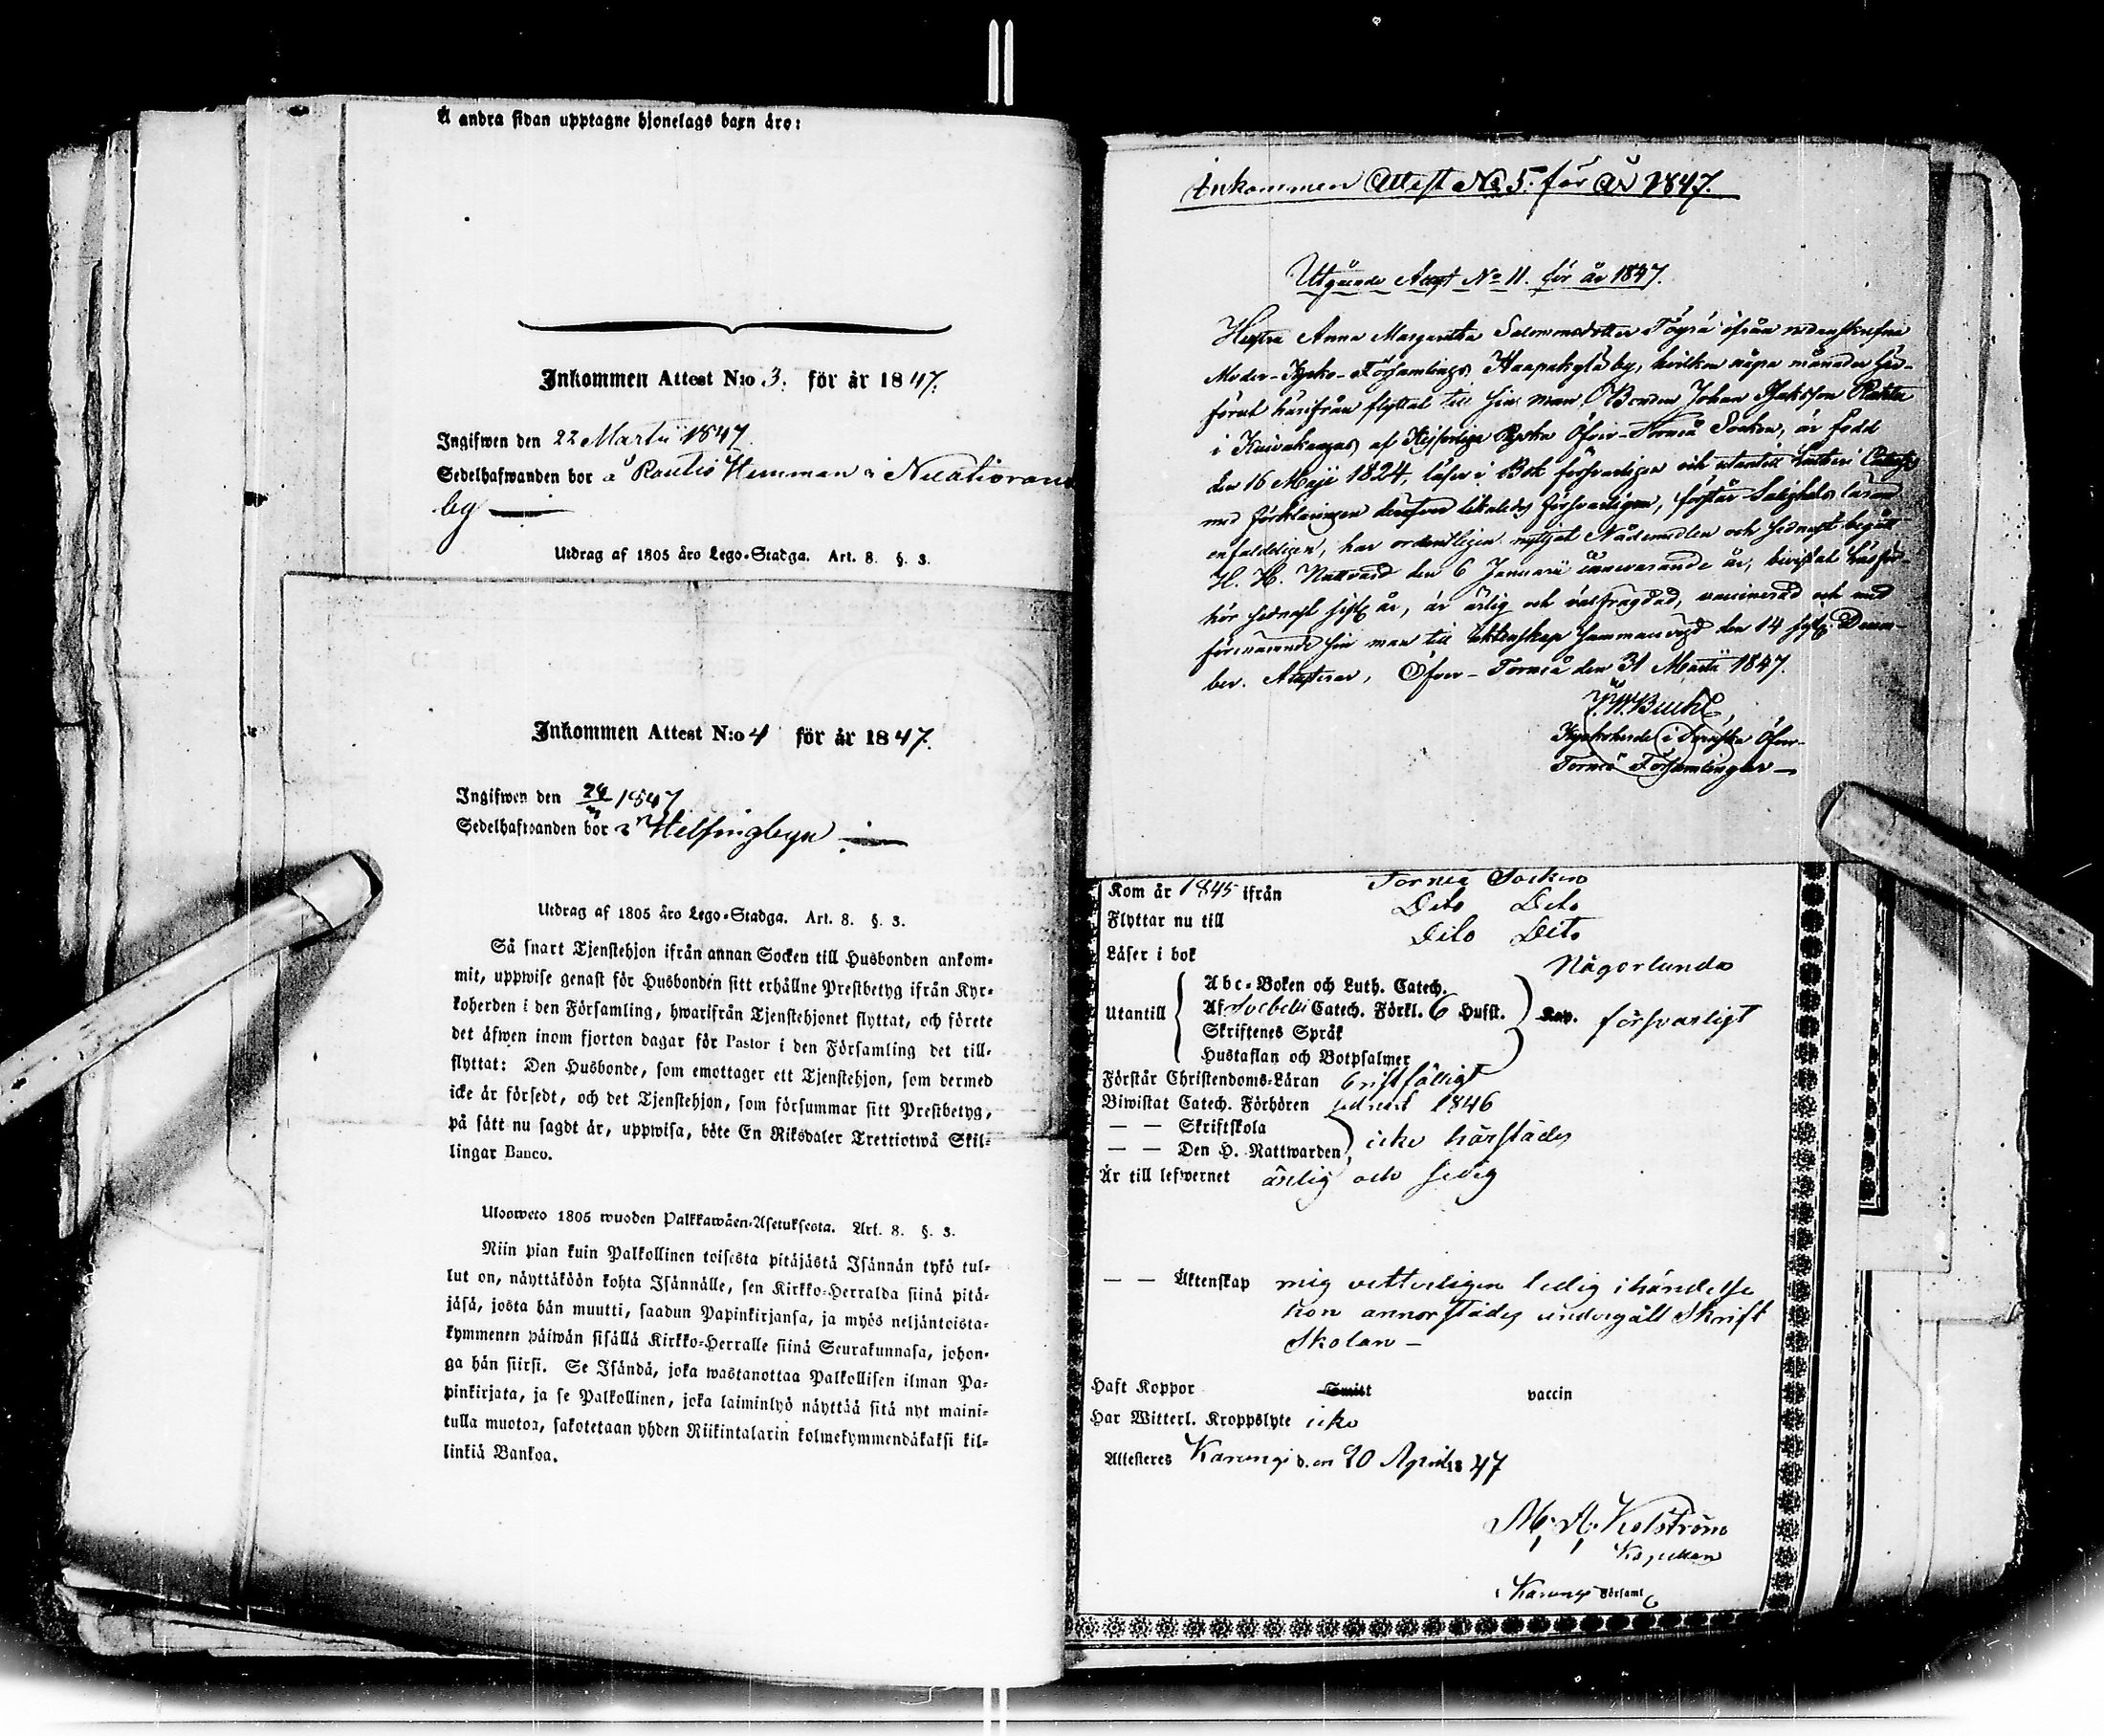 Å andra sidan upptagne hjonelags barn äro:
Inkommen Attest N:o 3. för år 1847.
Ingifwen den 22 Martii 1847.
Sedelhafwanden bor å Rautio Hemman i
by —
Utdrag af 1805 åro Lego-Stadga. Art. 8. §. 3.
Inkommen Attest N:o 4 för år 1847.
Ingifwen den 24/3 1847
Sedelhafwanden bor i Helsingbyn —
Utdrag af 1805 åro Lego-Stadga. Art. 8. §. 3.
Så snart Tjenstehjon ifrån annan Socken till Husbonden ankom-
mit, uppwise genast för Husbonden sitt erhållne Prestbetyg ifrån Kyr-
koherden i den Församling, hwarifrån Tjenstehjonet flyttat, och förete
det äfwen inom fjorton dagar för Pastor i den Församling det till-
flyttat: Den Husbonde, som emottager ett Tjenstehjon, som dermed
icke är försedt, och det Tjenstehjon, som försummar sitt Prestbetyg,
på sätt nu sagdt är, uppwisa, böte En Riksdaler Trettiotwå Skil-
lingar Banco.
Uloswcto 1805 wuoden Palkkawäen-Asetuksesta. Art. 8. §. 3.
Niin pian kuin Palkollinen toisesta pitäjästä Isännän tykö tul-
lut on, näyttäköön kohta Isännälle, sen Kirkko-Herralda siinä pitä-
jäsä, josta hän muutti, saadun Papinkirjansa, ja myös neljäntoista-
kymmenen päiwän sisällä Kirkko-Herralle siinä Seurakunnasa, johon-
ga hän siirsi. Se Isändä, joka wastanottaa Palkollisen ilman Pa-
pinkirjata, ja se Palkollinen, joka laiminlyö näyttää sitä nyt maini-
tulla muotoa, sakotetaan yhden Riikintalarin kolmekymmendäkaksi kil-
linkiä Bankoa.
Inkommen Attest No 5. för år 1847.
Utgående Attest No 11. för år 1847.
Hustru Anna Margaretha Salomonsdotter Töyrä ifrån nedanskrefne
Moder-Kyrko-Församlings Haapakylä by, hvilken några månader här-
förut härifrån flyttat till sin man Bonden Johan Isaksson
i Kuivakangas af Kejserliga Ryska Öfver-Torneå Socken, är född
den 16 Maji 1824, läser i Bok försvarligen och utantill Lutheri
med förklaringen deröfver likaledes försvarligen, förstår Salighets läran
enfaldeligen, har ordentligen nyttjat Nådemedlen och sednast begått
H. H. Nattvard den 6 Januarii innevarande år, bivistat Läsför-
hör sednast sistl. år, är ärlig och välfrägdad, vaccinerad och med
förenämnde sin man till äktenskap sammanvigd den 14 sistl. Decem-
ber. Attesterar, Öfver-Torneå den 31 Martii 1847.
Kyrkoherde i Svenska Öfver-
Torneå Församlingar —
Kom år 1845 ifrån Torneå Socken
Flyttar nu till Dito Dito
Läser i bok Dito Dito
Någorlunda
Utantill
Abc-Boken och Luth. Catech.
Af Svebelii Catech. Förkl. 6 Hufst.
Skriftenes Språk
Hustaflan och Botpsalmer
försvarligt
Förstår Christendoms-Läran bristfälligt
Biwistat Catech. Förhören sednast 1846
— — Skriftskola
— — Den H. Nattwarden icke härstädes
Är till lefwernet ärlig och sedig
— — Äktenskap mig vetterligen ledig ihändelse
hon annorstädes undergått Skrift
Skolan —
Haft Koppor vaccin
Har Witterl. Kroppslyte icke
Attesteres Karungi den 20 Aprilis 47
Kapellan
i Karungi Församl